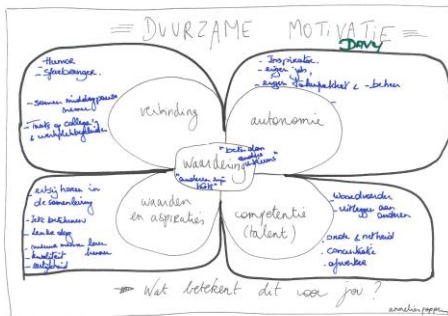 DUURZAME MOTIVATIE
DAVY
- Humor
- sfeerbrenger
- samen middagpauze
nemen
- Trots op collega's
& werkplekbegeleider
verbinding
- Inspiratie
- eigen job
- eigen takenpakket & -beheer
autonomie
"beter dan
waardering
erbij horen in
de samenleving
- iets betekenen
- leuke dag
- nieuwe mensen leren
kennen
- kwaliteit
- eerlijkheid
waarden
en aspiraties
competentie
(talent)
- woordvoerder
- uitleggen aan
anderen
- orde & netheid
- concentratie
- afwerken
Wat betekent dit voor jou?